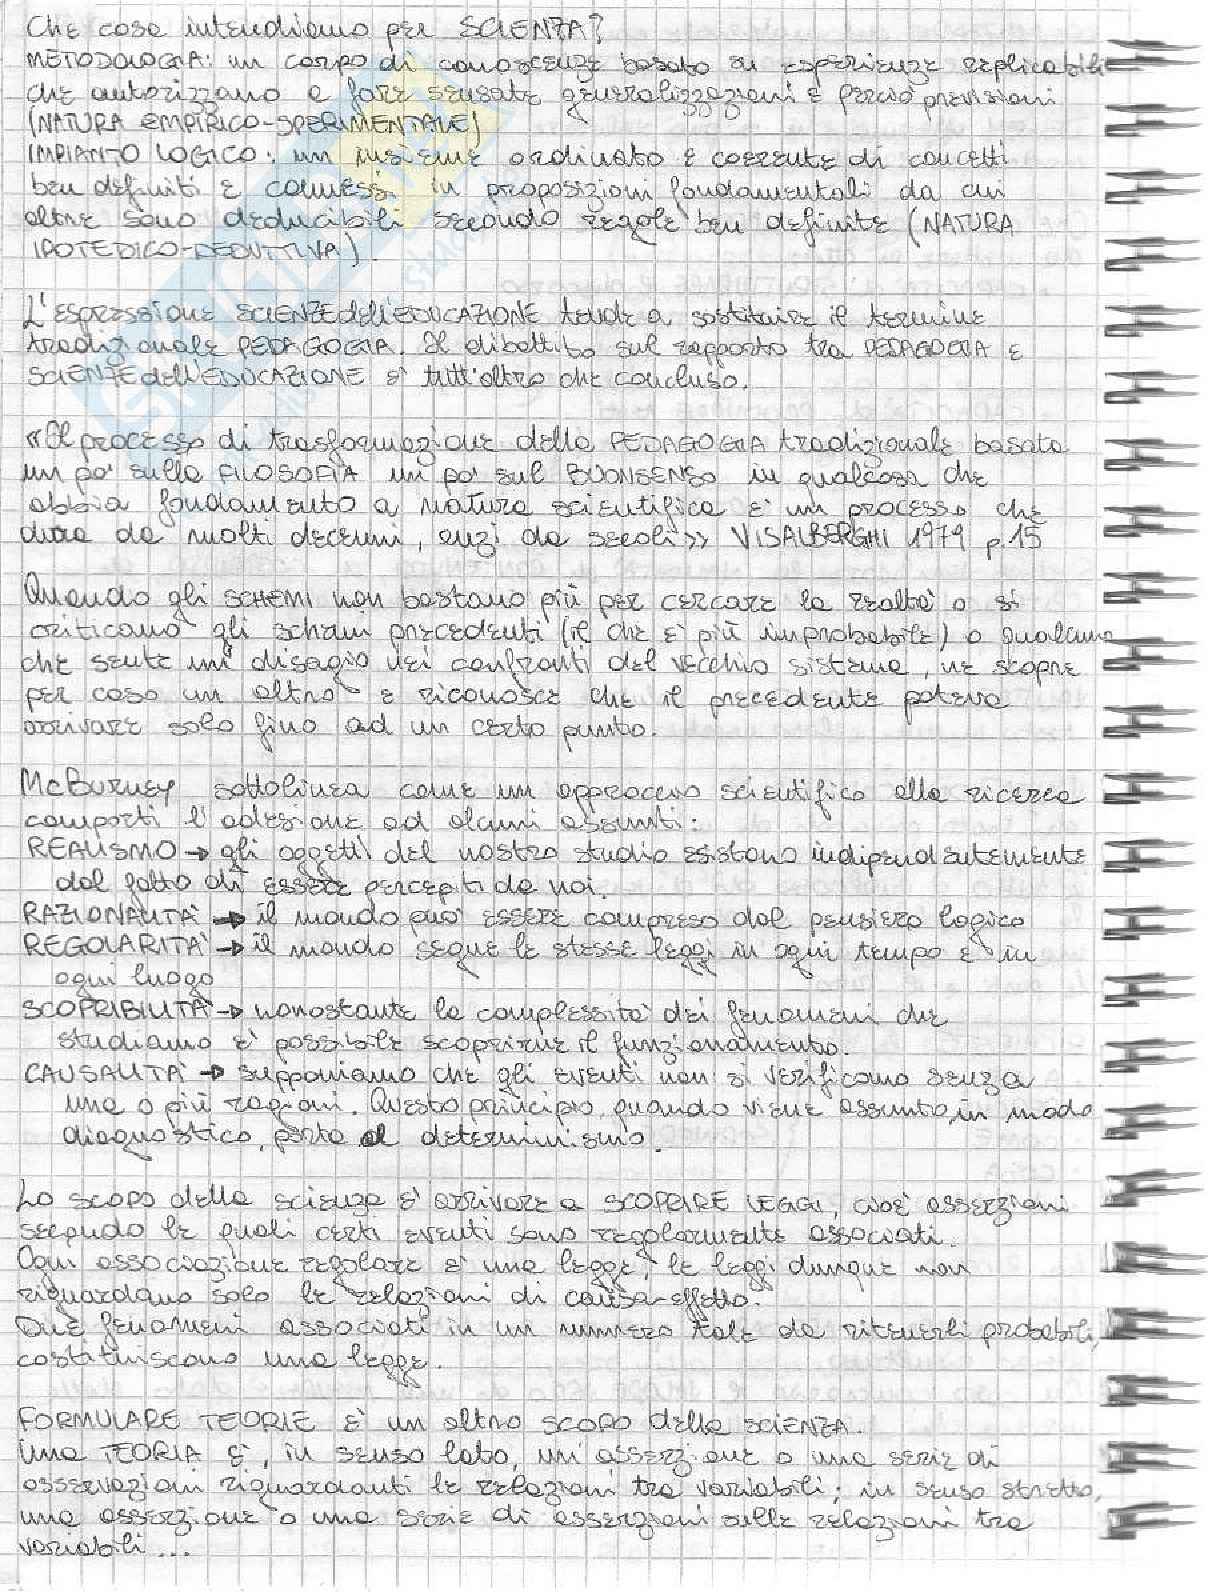 Che cosa intendiamo per SCIENZA?
METODOLOGIA: un corpo di conoscenze basato su esperienze replicabili
che autorizzano a fare sensate generalizzazioni e perciò previsioni
(NATURA EMPIRICO-SPERIMENTALE)
IMPIANTO LOGICO: un insieme ordinato e coerente di concetti
ben definiti e connessi in proposizioni fondamentali da cui
altre sono deducibili secondo regole ben definite (NATURA
IPOTEDICO-DEDUTTIVA)
L'espressione SCIENZE dell'EDUCAZIONE tende a sostituire il termine
tradizionale PEDAGOGIA. Il dibattito sul rapporto tra PEDAGOGIA e
SCIENZE dell'EDUCAZIONE è tutt'altro che concluso.
«Il processo di trasformazione della PEDAGOGIA tradizionale basata
un po' sulla FILOSOFIA un po' sul BUONSENSO in qualcosa che
abbia fondamento a natura scientifica è un processo che
dura da molti decenni, anzi da secoli» VISALBERGHI 1979 p.15
Quando gli SCHEMI non bastano più per cercare la realtà o si
criticano gli schemi precedenti (il che è più improbabile) o qualcuno
che sente un disagio nei confronti del vecchio sistema, ne scopre
per caso un altro e riconosce che il precedente poteva
arrivare solo fino ad un certo punto.
McBurney sottolinea come un approccio scientifico alla ricerca
comporti l'adesione ad alcuni assunti:
REALISMO → gli oggetti del nostro studio esistono indipendentemente
dal fatto di essere percepiti da noi.
RAZIONALITÀ → il mondo può essere compreso dal pensiero logico
REGOLARITÀ → il mondo segue le stesse leggi in ogni tempo e in
ogni luogo
SCOPRIBILITÀ → nonostante la complessità dei fenomeni che
studiamo è possibile scoprirne il funzionamento.
CAUSALITÀ → supponiamo che gli eventi non si verificano senza
una o più ragioni. Questo principio, quando viene assunto, in modo
diagnostico, porta al determinismo.
Lo scopo della scienza è arrivare a SCOPRIRE LEGGI, cioè asserzioni
secondo le quali certi eventi sono regolarmente associati.
Ogni associazione regolare è una legge; le leggi dunque non
riguardano solo le relazioni di causa-effetto.
Due fenomeni associati in un numero tale da ritenerli probabili,
costituiscono una legge.
FORMULARE TEORIE è un altro scopo della SCIENZA.
Una TEORIA è, in senso lato, un'asserzione o una serie di
osservazioni riguardanti le relazioni tra variabili; in senso stretto,
una asserzione o una serie di asserzioni sulle relazioni tra
variabili...